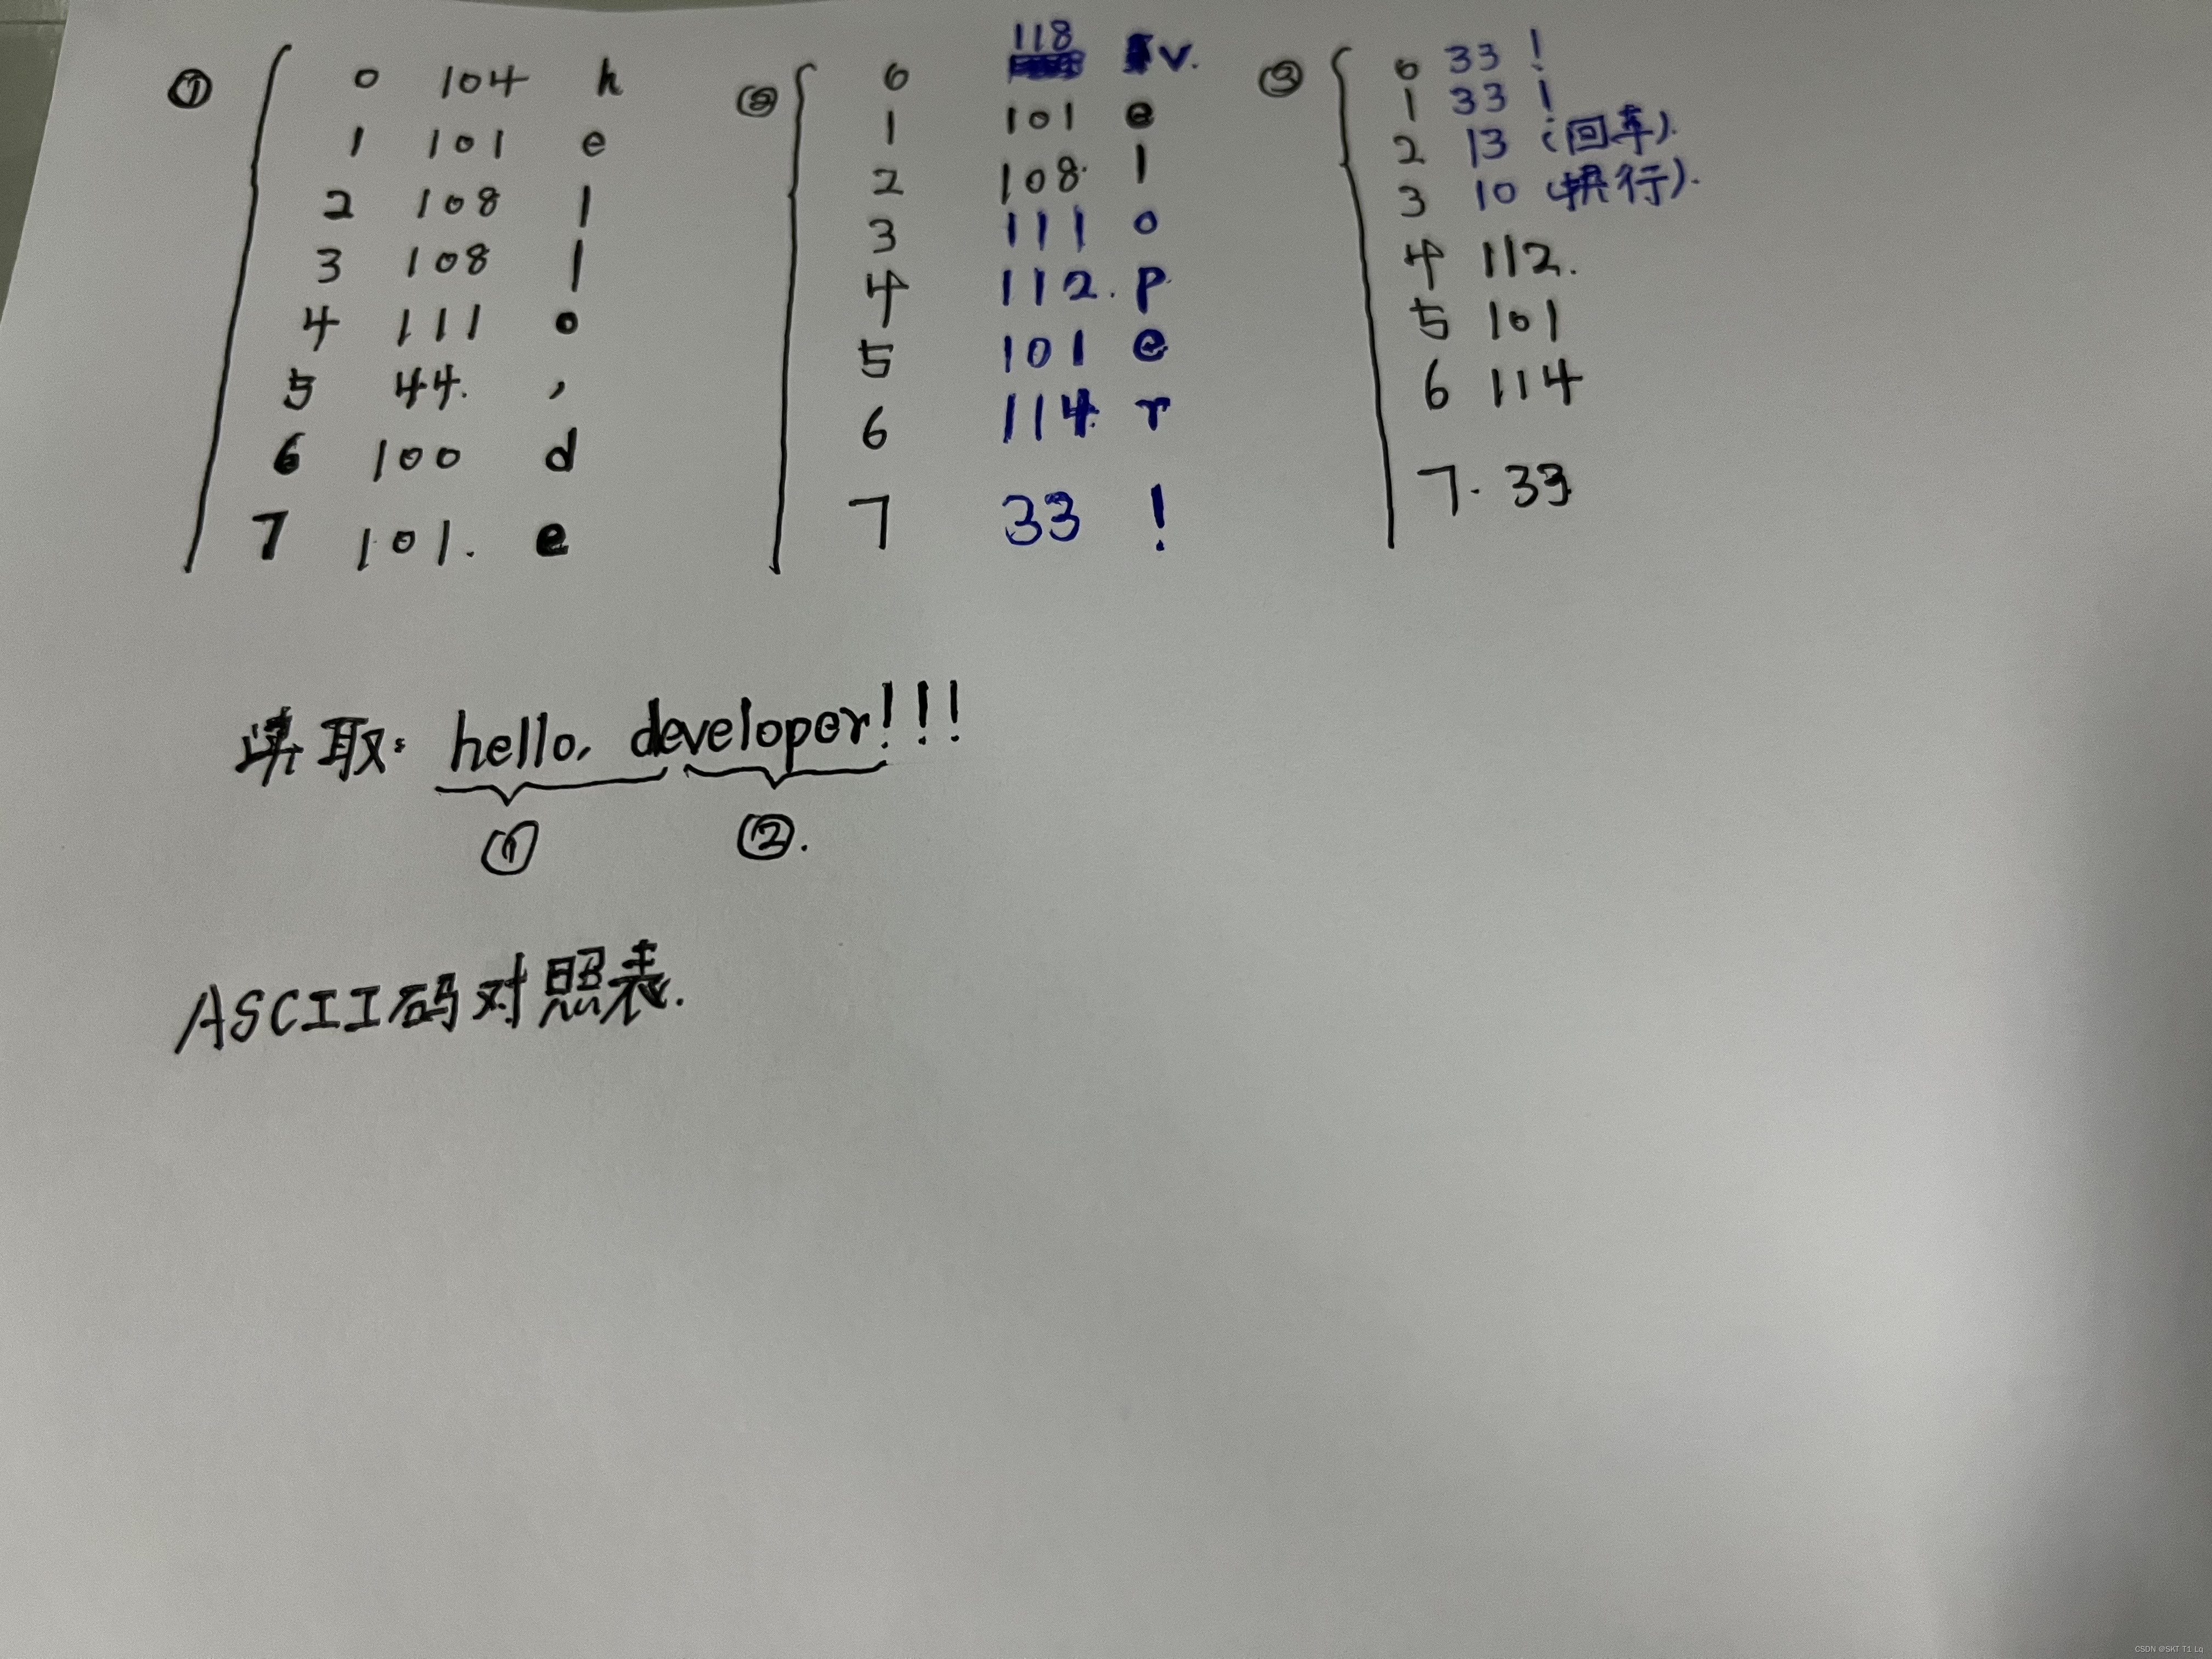 ① 0 104 h
1 101 e
2 108 l
3 108 l
4 111 o
5 44. ,
6 100 d
7 101. e
② 0 118 v.
1 101 e
2 108. l
3 111 o
4 112. p
5 101 e
6 114. r
7 33 !
③ 0 33 !
1 33 !
2 13 (回车).
3 10 (换行).
4 112.
5 101
6 114
7. 33
读取: hello, developer!!!
① ②.
ASCII码对照表.
CSDN @SKT T1 Lq